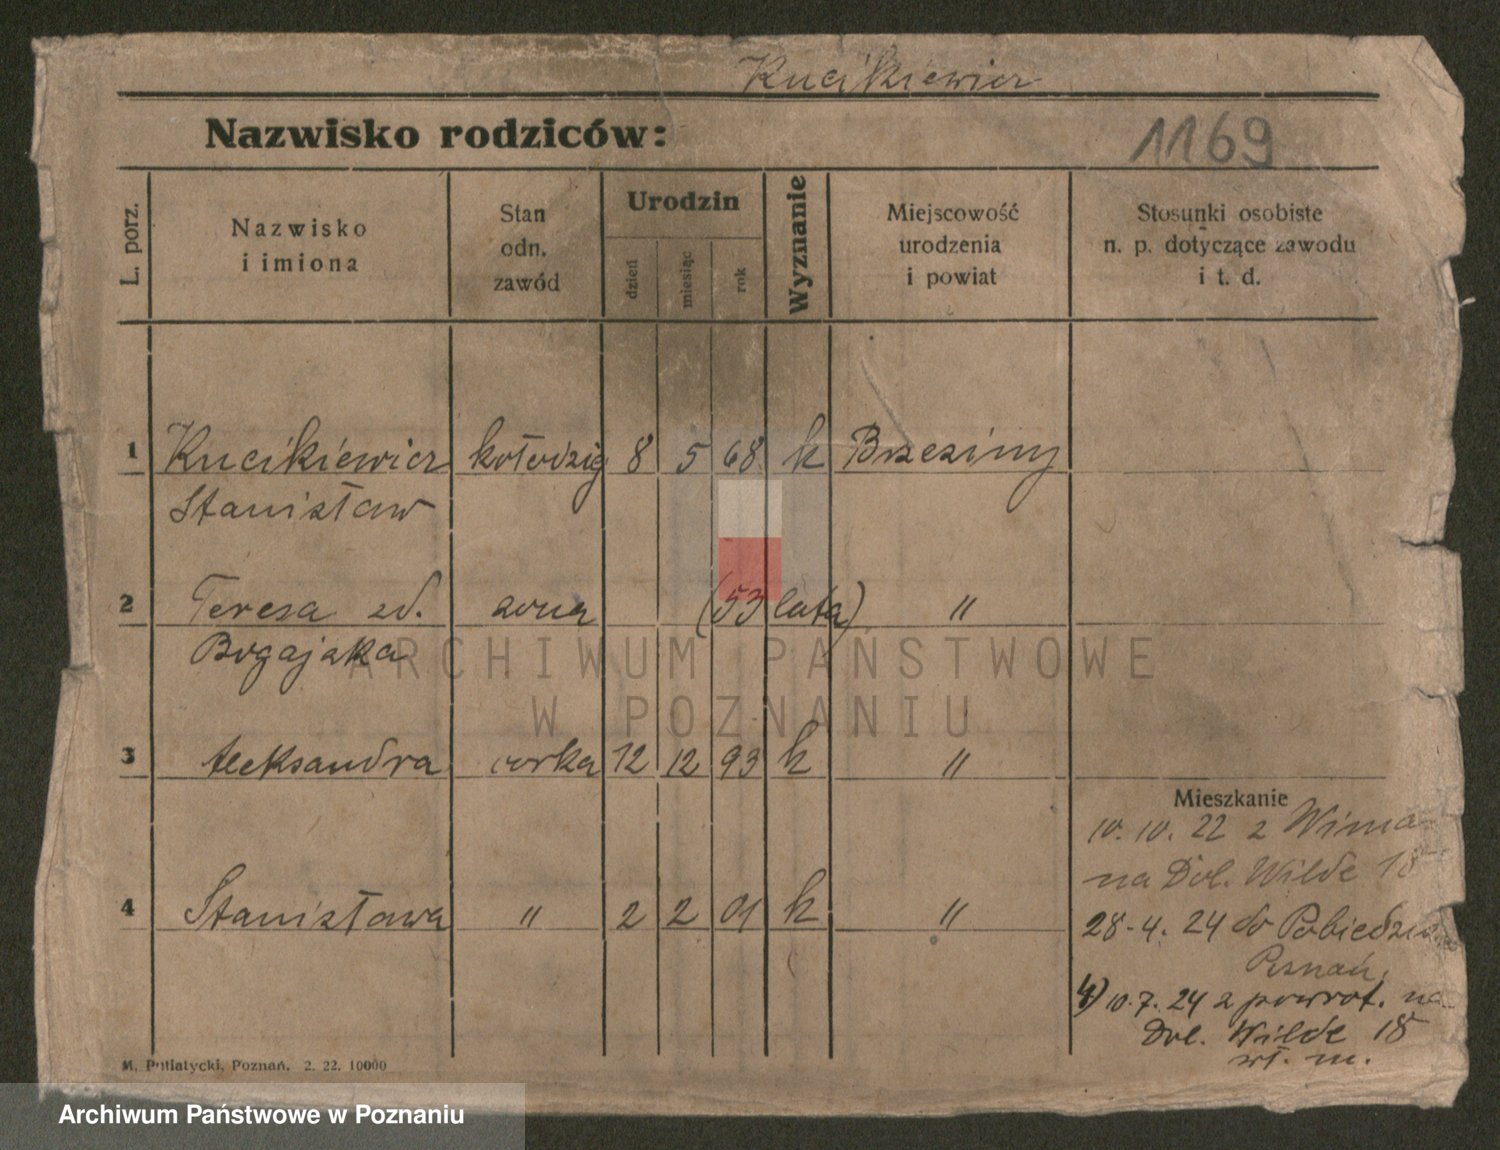 Kucikiewicz
Nazwisko rodziców:
1169
L. porz.
Nazwisko
i imiona
Stan
odn.
zawód
Urodzin
dzień
miesiąc
rok
Wyznanie
Miejscowość
urodzenia
i powiat
Stosunki osobiste
n. p. dotyczące zawodu
i t. d.
1 Kucikiewicz kołodziej 8 5 68. k Brzeziny
Stanisław
2 Teresa zd. żona (53 lata) "
Bogajska
3 Aleksandra córka 12 12 93 k "
4 Stanisława " 2 2 01 k "
Mieszkanie
10.10.22 z
na Dol. Wilde 18
28.4.24 do
Poznań
4) 10.7.24 z powrot. na
Dol. Wilde 18
wł. m.
M. Putiatycki, Poznań. 2. 22. 10000
ARCHIWUM PAŃSTWOWE
W POZNANIU
Archiwum Państwowe w Poznaniu